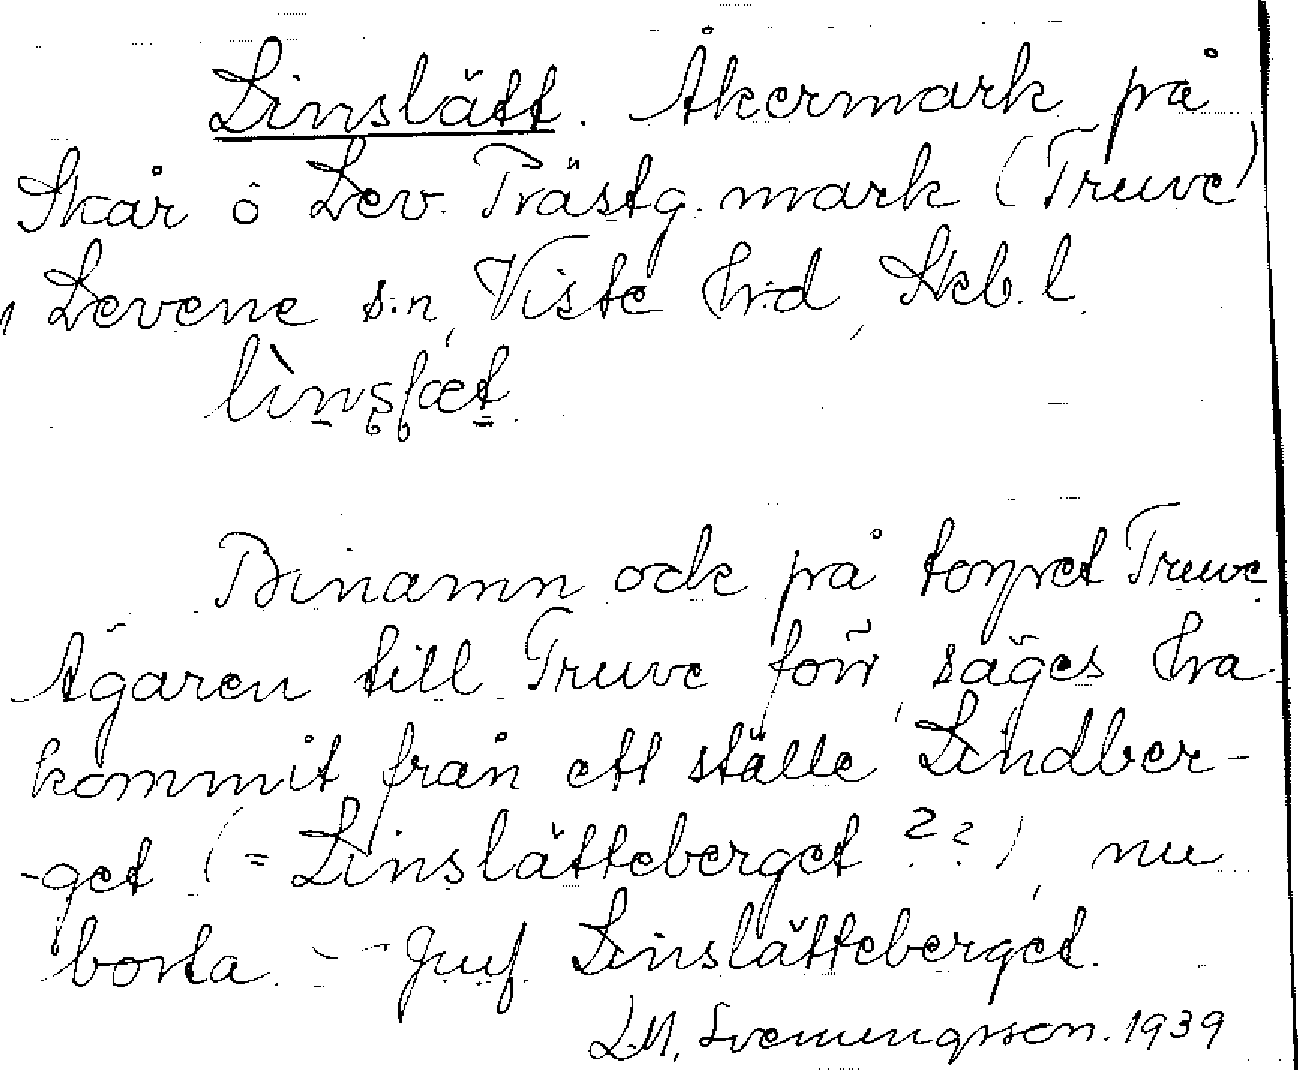 Linslätt. Åkermark på
Skår o Lev. Prästg. mark (Truve)
, Levene s:n, Viste hrd, Skb. l.
Binamn ock på torpet Truve.
Ägaren till Truve förr, säges ha
kommit från ett ställe Lindber-
-get (= Linslätteberget ??), nu
borta. - Jmf. Linslätteberget.
L.M. Svenungsson. 1939